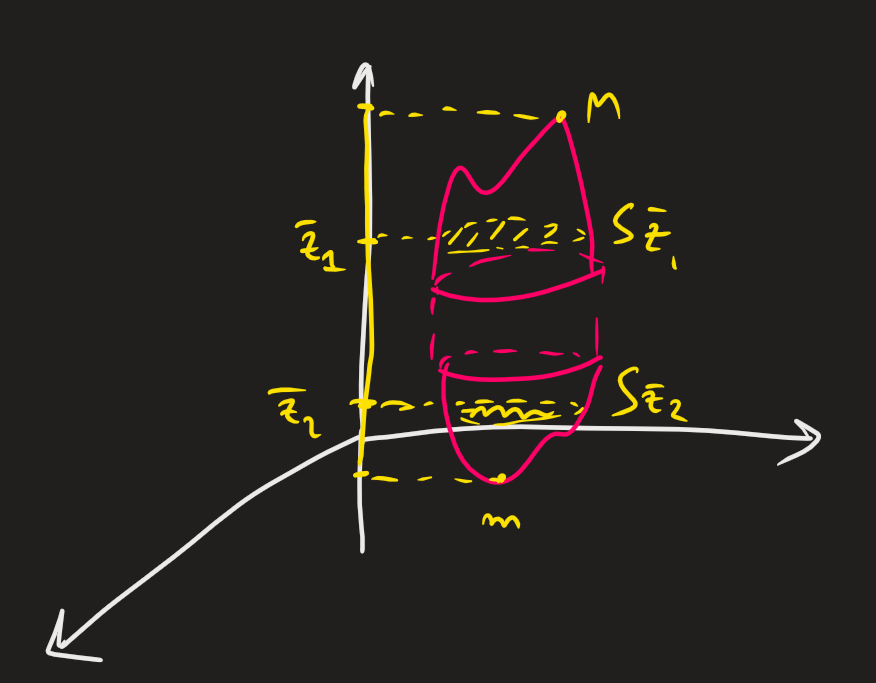 M
z̄₁
S z̄₁
z̄₂
S z̄₂
m